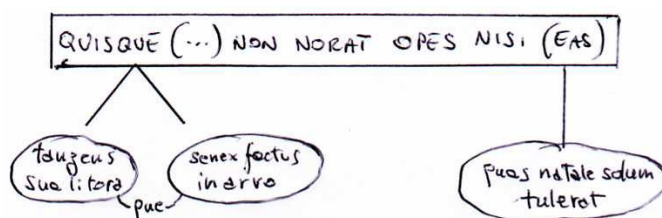 QUISQUE (...) NON NORAT OPES NISI (EAS)
tangens
sua litora
que
senex factus
in arvo
quas natale solum
tulerat